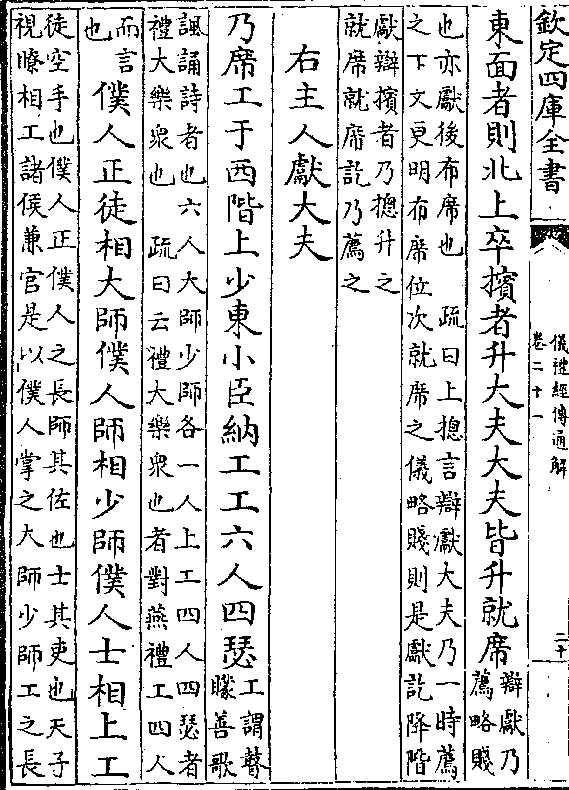 欽定四庫全書
儀禮經傳通解
卷二十一
二十
東面者則北上卒擯者升大夫大夫皆升就席
辯獻乃
薦略賤
也亦獻後布席也　疏曰上揔言辯獻大夫乃一時薦
之下文更明布席位次就席之儀略賤則是獻訖降階
獻辯擯者乃揔升之
就席就席訖乃薦之
右主人獻大夫
乃席工于西階上少東小臣納工工六人四瑟
工謂瞽
矇善歌
諷誦詩者也六人大師少師各一人上工四人四瑟者
禮大樂衆也　疏曰云禮大樂衆也者對燕禮工四人
而言
也
僕人正徒相大師僕人師相少師僕人士相上工
徒空手也僕人正僕人之長師其佐也士其吏也天子
視瞭相工諸侯兼官是以僕人掌之大師少師工之長